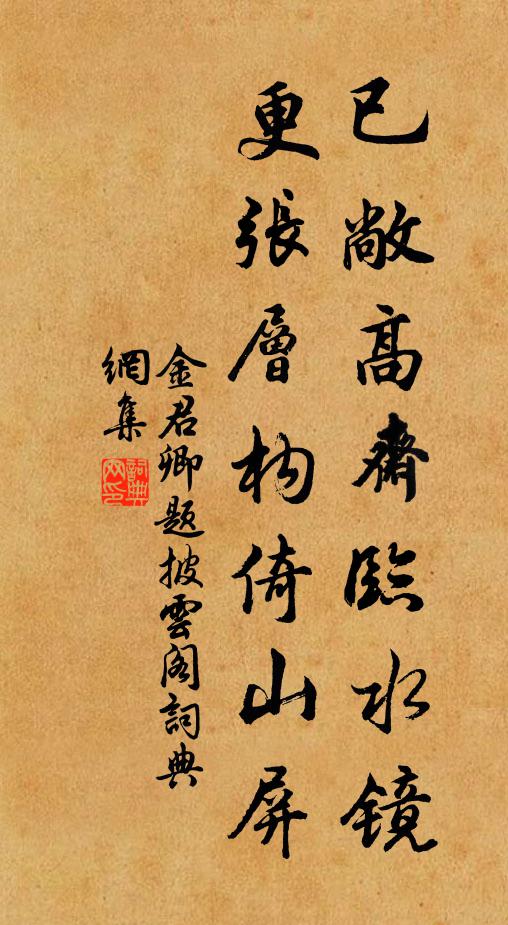 已敞高齋臨水镜
更張層构倚山屏
金君卿題披雲阁詞典
網集
詞典
网印